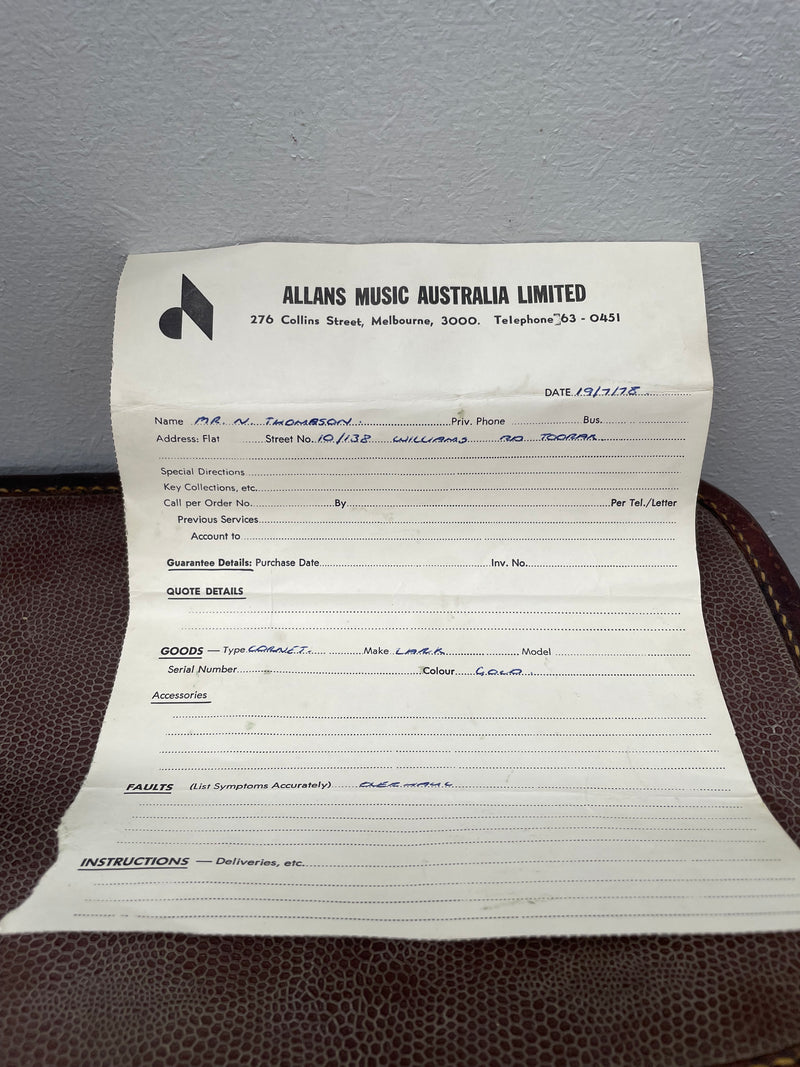 ALLANS MUSIC AUSTRALIA LIMITED
276 Collins Street, Melbourne, 3000. Telephone 63 - 0451
DATE 19/7/78
Name MR. N. THOMPSON Priv. Phone Bus.
Address: Flat Street No. 10/138 WILLIAMS RD TOORAK
Special Directions
Key Collections, etc.
Call per Order No. By Per Tel./Letter
Previous Services
Account to
Guarantee Details: Purchase Date Inv. No.
QUOTE DETAILS
GOODS — Type CORNET. Make LARK Model
Serial Number Colour GOLD.
Accessories
FAULTS (List Symptoms Accurately) OVERHAUL
INSTRUCTIONS — Deliveries, etc.